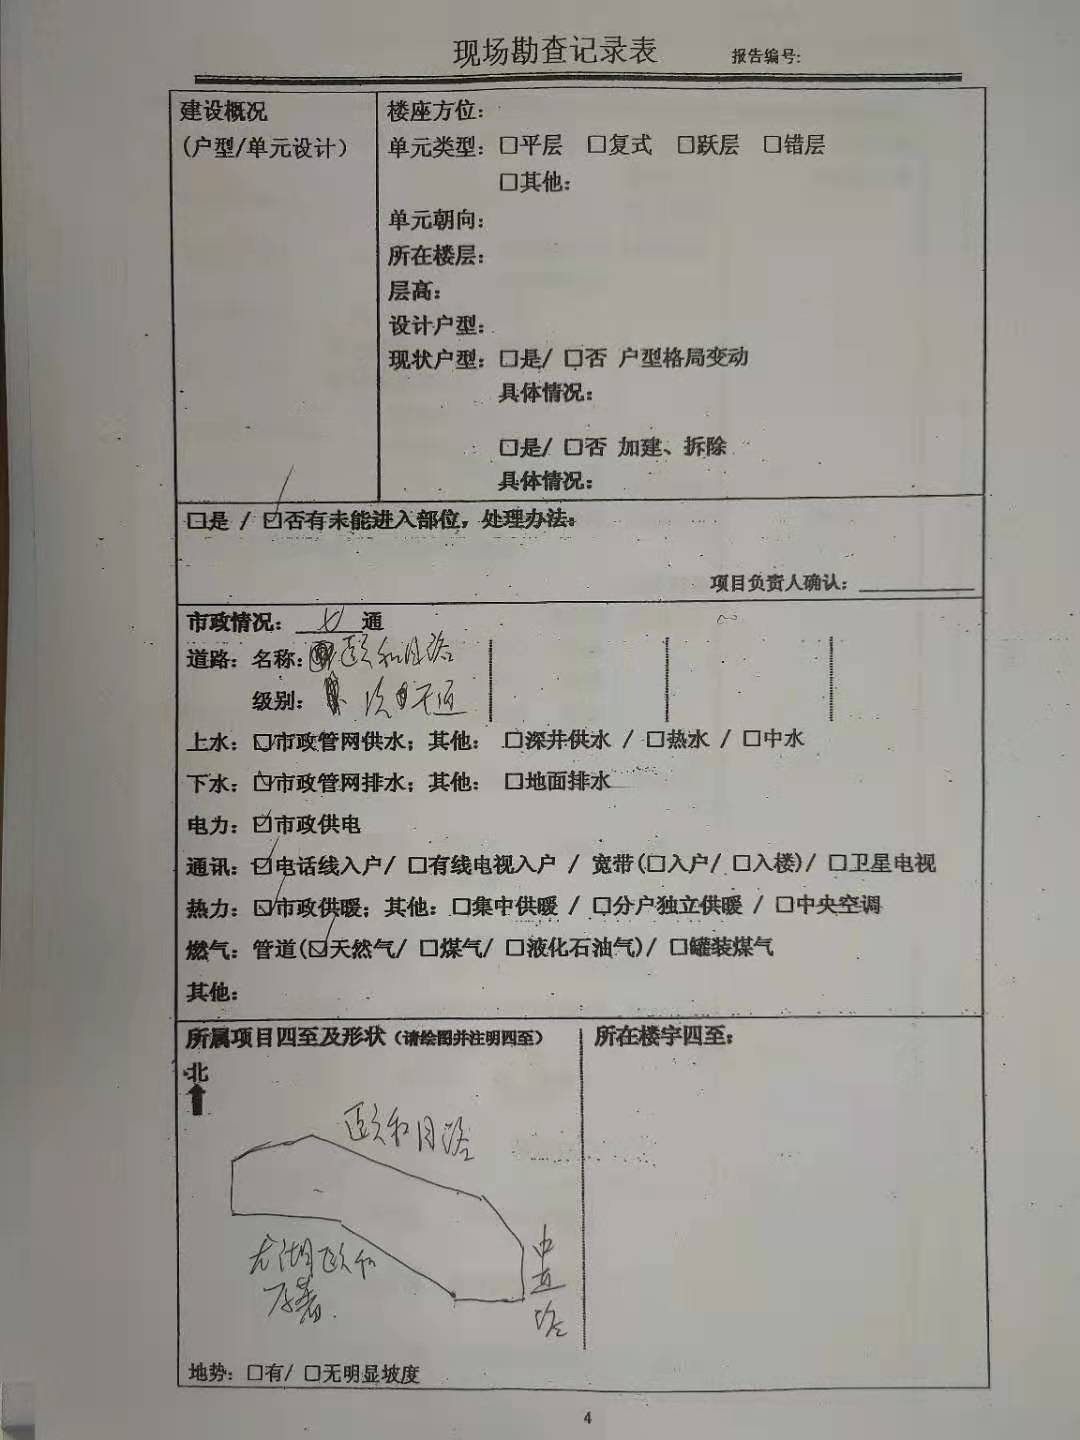 现场勘查记录表 报告编号:
建设概况
(户型/单元设计)
楼座方位:
单元类型: □平层 □复式 □跃层 □错层
□其他:
单元朝向:
所在楼层:
层高:
设计户型:
现状户型: □是/ □否 户型格局变动
具体情况:
□是/ □否 加建、拆除
具体情况:
□是 / ☑否有未能进入部位, 处理办法:
项目负责人确认:
市政情况: 七 通
道路: 名称: 颐和月路
级别: 次干道
上水: ☑市政管网供水; 其他: □深井供水 / □热水 / □中水
下水: ☑市政管网排水; 其他: □地面排水
电力: ☑市政供电
通讯: ☑电话线入户/ □有线电视入户 / 宽带(□入户/ □入楼)/ □卫星电视
热力: ☑市政供暖; 其他: □集中供暖 / □分户独立供暖 / □中央空调
燃气: 管道(☑天然气/ □煤气/ □液化石油气)/ □罐装煤气
其他:
所属项目四至及形状 (请绘图并注明四至)
所在楼宇四至:
北
颐和月路
湖颐和
路
地势: □有/ □无明显坡度
4